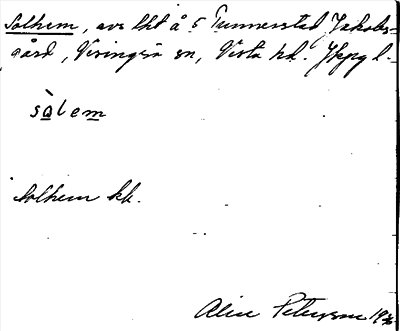 Solhem, avs lht å 5 Tunnerstad Jakobs-
gård, Visingsö sn, Vista hd. Jkpg l.
sàlem
Solhem kk.
Alice Peterson 19